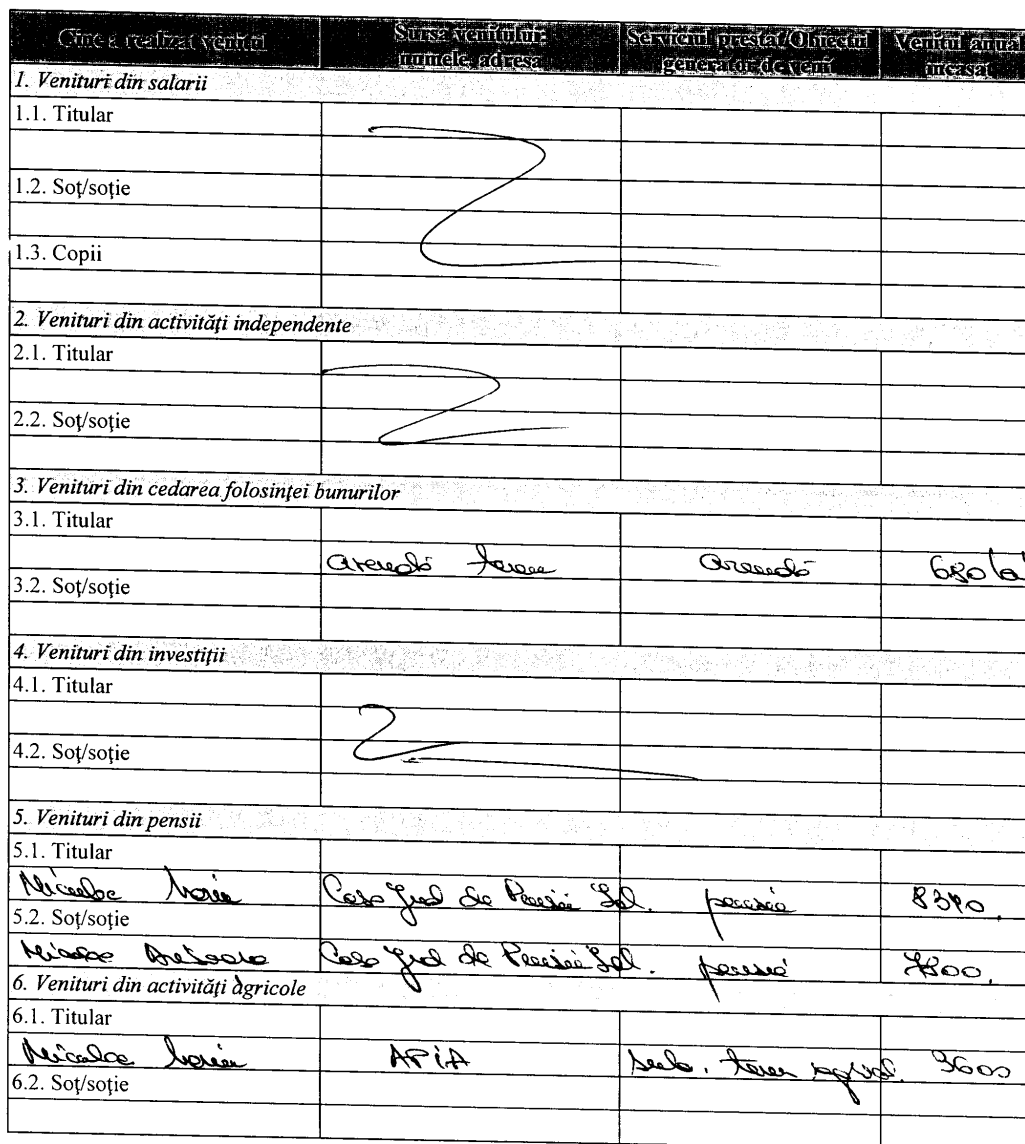 Cine a realizat venitul
Sursa venitului: numele, adresa
Serviciul prestat/Obiectul generator de venit
Venitul anual încasat
1. Venituri din salarii
1.1. Titular
1.2. Soţ/soţie
1.3. Copii
2. Venituri din activităţi independente
2.1. Titular
2.2. Soţ/soţie
3. Venituri din cedarea folosinţei bunurilor
3.1. Titular
arendă teren arendă 680 lei
3.2. Soţ/soţie
4. Venituri din investiţii
4.1. Titular
4.2. Soţ/soţie
5. Venituri din pensii
5.1. Titular
Casa Jud de Pensii pensie
5.2. Soţ/soţie
Casa Jud de Pensii pensie 7800.
6. Venituri din activităţi agricole
6.1. Titular
APIA teren 3600
6.2. Soţ/soţie